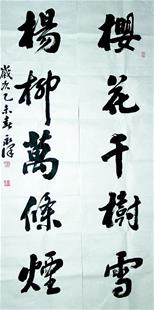 櫻花千樹雪
楊柳萬條煙
歲次乙未春